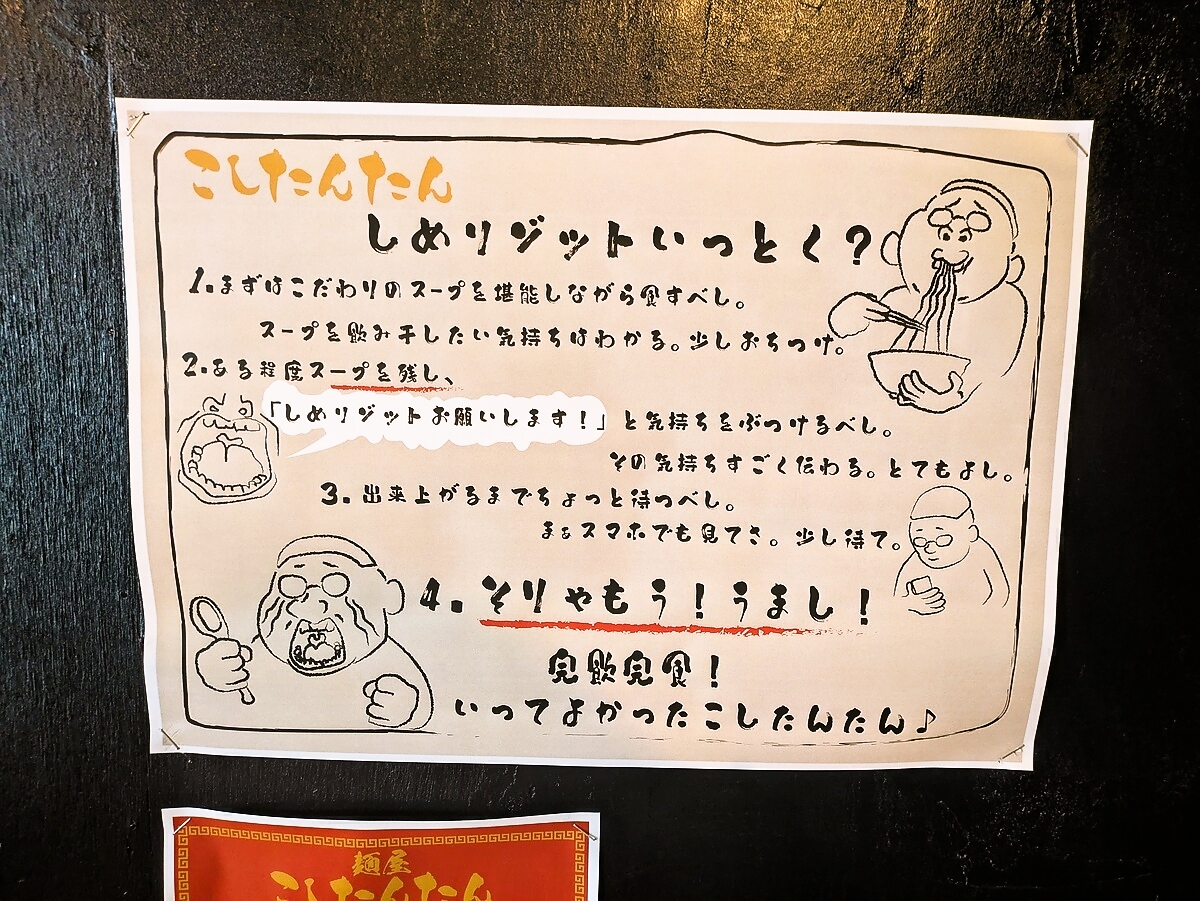 こしたんたん
しめリゾットいっとく？
1.まずはこだわりのスープを堪能しながら食すべし。
スープを飲み干したい気持ちはわかる。少しおちつけ。
2.ある程度スープを残し、
「しめリゾットお願いします！」と気持ちをぶつけるべし。
その気持ちすごく伝わる。とてもよし。
3.出来上がるまでちょっと待つべし。
まぁスマホでも見てさ。少し待て。
4.そりゃもう！うまし！
完飲完食！
いってよかったこしたんたん♪
麺屋
こしたんたん